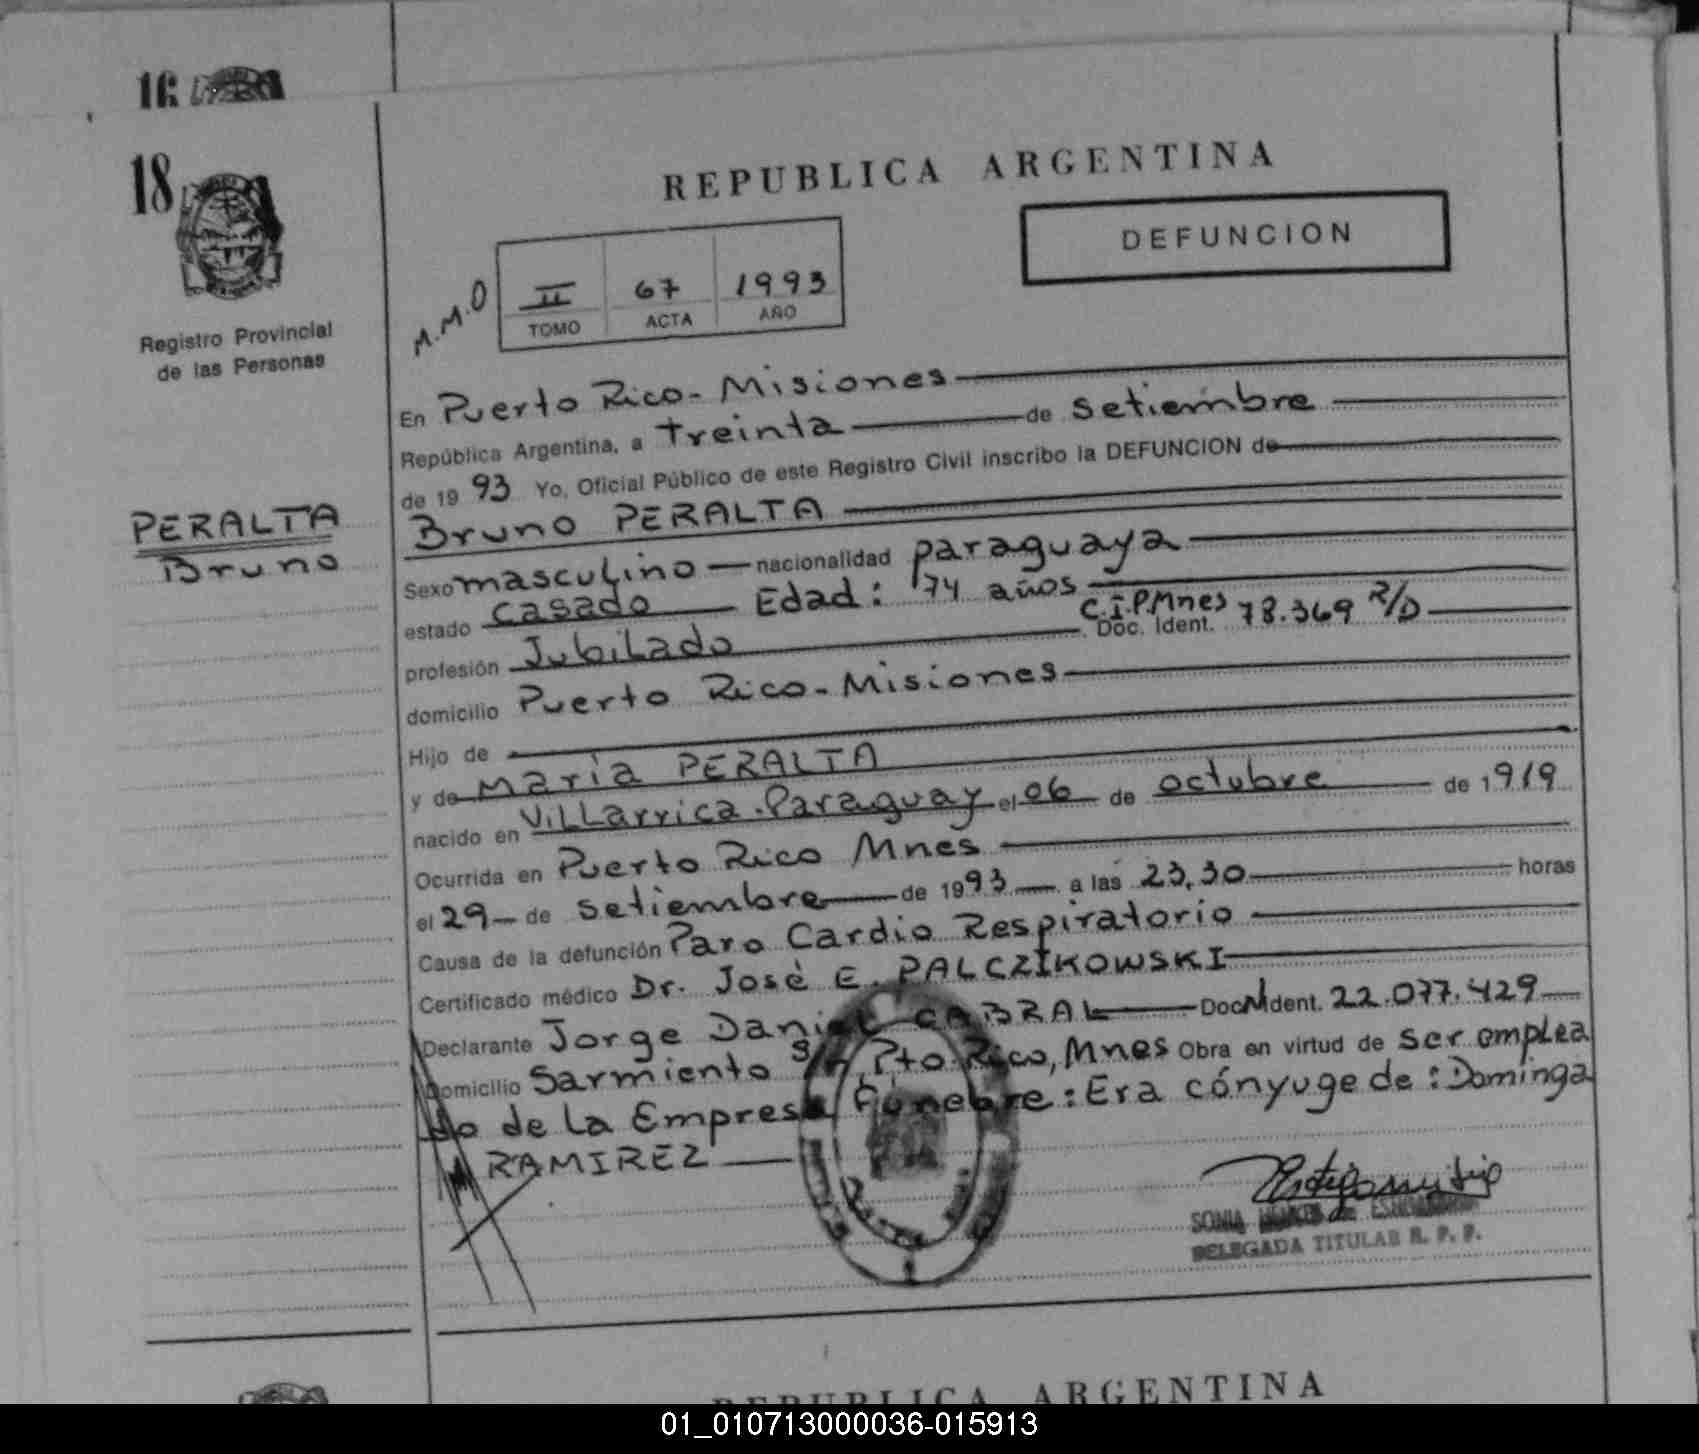 16
18
Registro Provincial
de las Personas
REPUBLICA ARGENTINA
DEFUNCION
M.M.O
II 67 1993
TOMO ACTA AÑO
PERALTA
Bruno
En Puerto Rico - Misiones
República Argentina, a treinta de setiembre
de 1993 Yo, Oficial Público de este Registro Civil inscribo la DEFUNCION de
Bruno PERALTA
Sexo masculino nacionalidad paraguaya
estado casado Edad: 74 años
profesión Jubilado C.I.P.Mnes Doc. Ident. 78.369 R/D
domicilio Puerto Rico - Misiones
Hijo de
y de María PERALTA
nacido en Villarrica - Paraguay el 06 de octubre de 1919
Ocurrida en Puerto Rico Mnes
el 29 de setiembre de 1993 a las 23,30 horas
Causa de la defunción Paro Cardio Respiratorio
Certificado médico Dr. José E. PALCZIKOWSKI
Declarante Jorge Daniel CABRAL Doc. Ident. 22.077.429
Domicilio Sarmiento S/N Pto Rico, Mnes Obra en virtud de ser emplea
do de la Empresa Fúnebre: Era cónyuge de: Dominga
RAMIREZ
SONIA de
DELEGADA TITULAR R. P. P.
REPUBLICA ARGENTINA
01_010713000036-015913